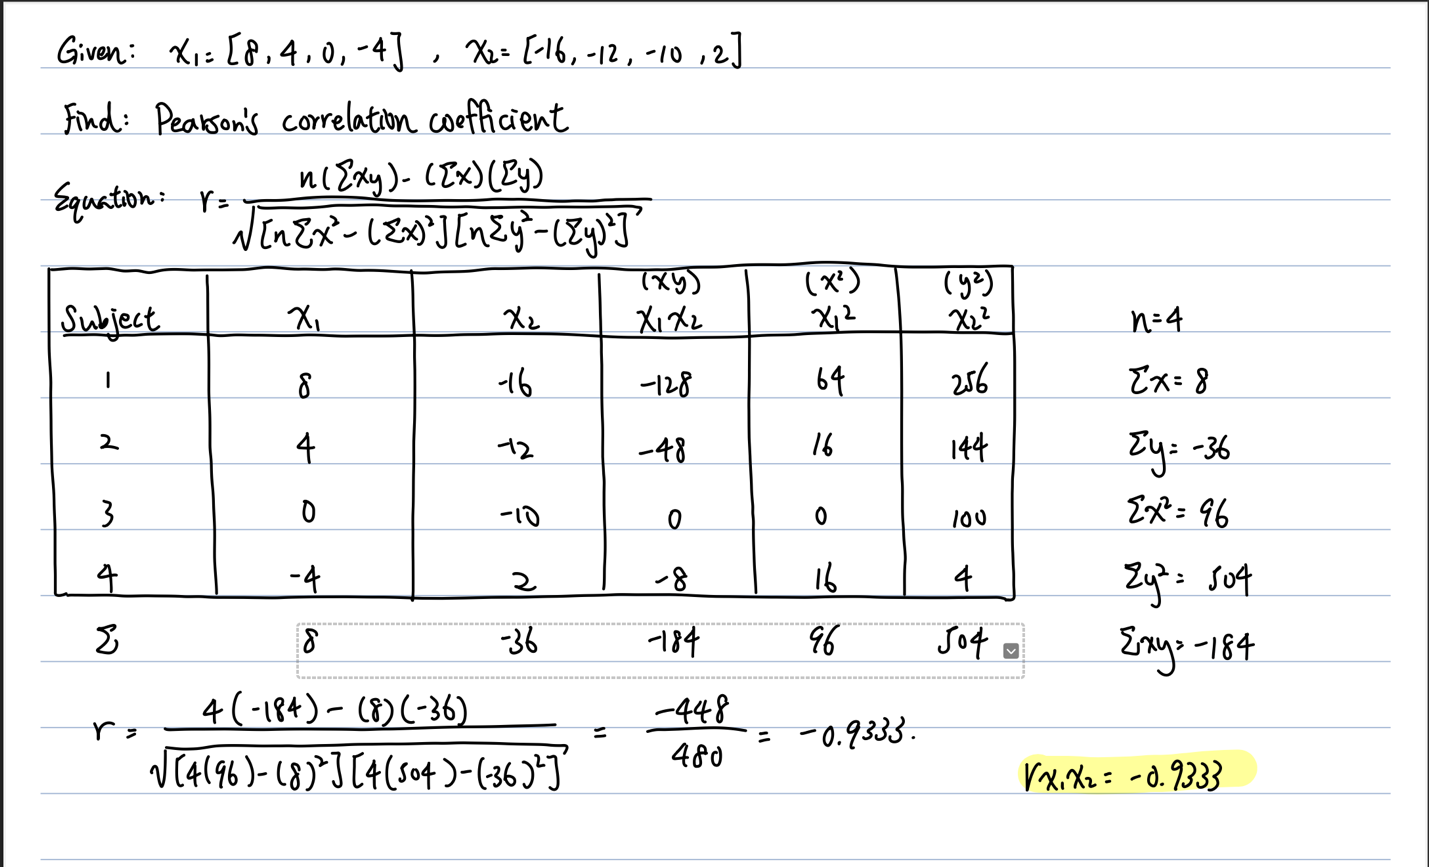 Given: x₁= [8, 4, 0, -4] , x₂= [-16, -12, -10, 2]
Find: Pearson's correlation coefficient
Equation: r= n(Σxy)-(Σx)(Σy) / √[nΣx²-(Σx)²][nΣy²-(Σy)²]
(xy) (x²) (y²)
Subject x₁ x₂ x₁x₂ x₁² x₂² n=4
1 8 -16 -128 64 256 Σx= 8
2 4 -12 -48 16 144 Σy= -36
3 0 -10 0 0 100 Σx²= 96
4 -4 2 -8 16 4 Σy²= 504
Σ 8 -36 -184 96 504 Σxy= -184
r= 4(-184)-(8)(-36) / √[4(96)-(8)²][4(504)-(-36)²] = -448 / 480 = -0.9333.
rx₁x₂= -0.9333